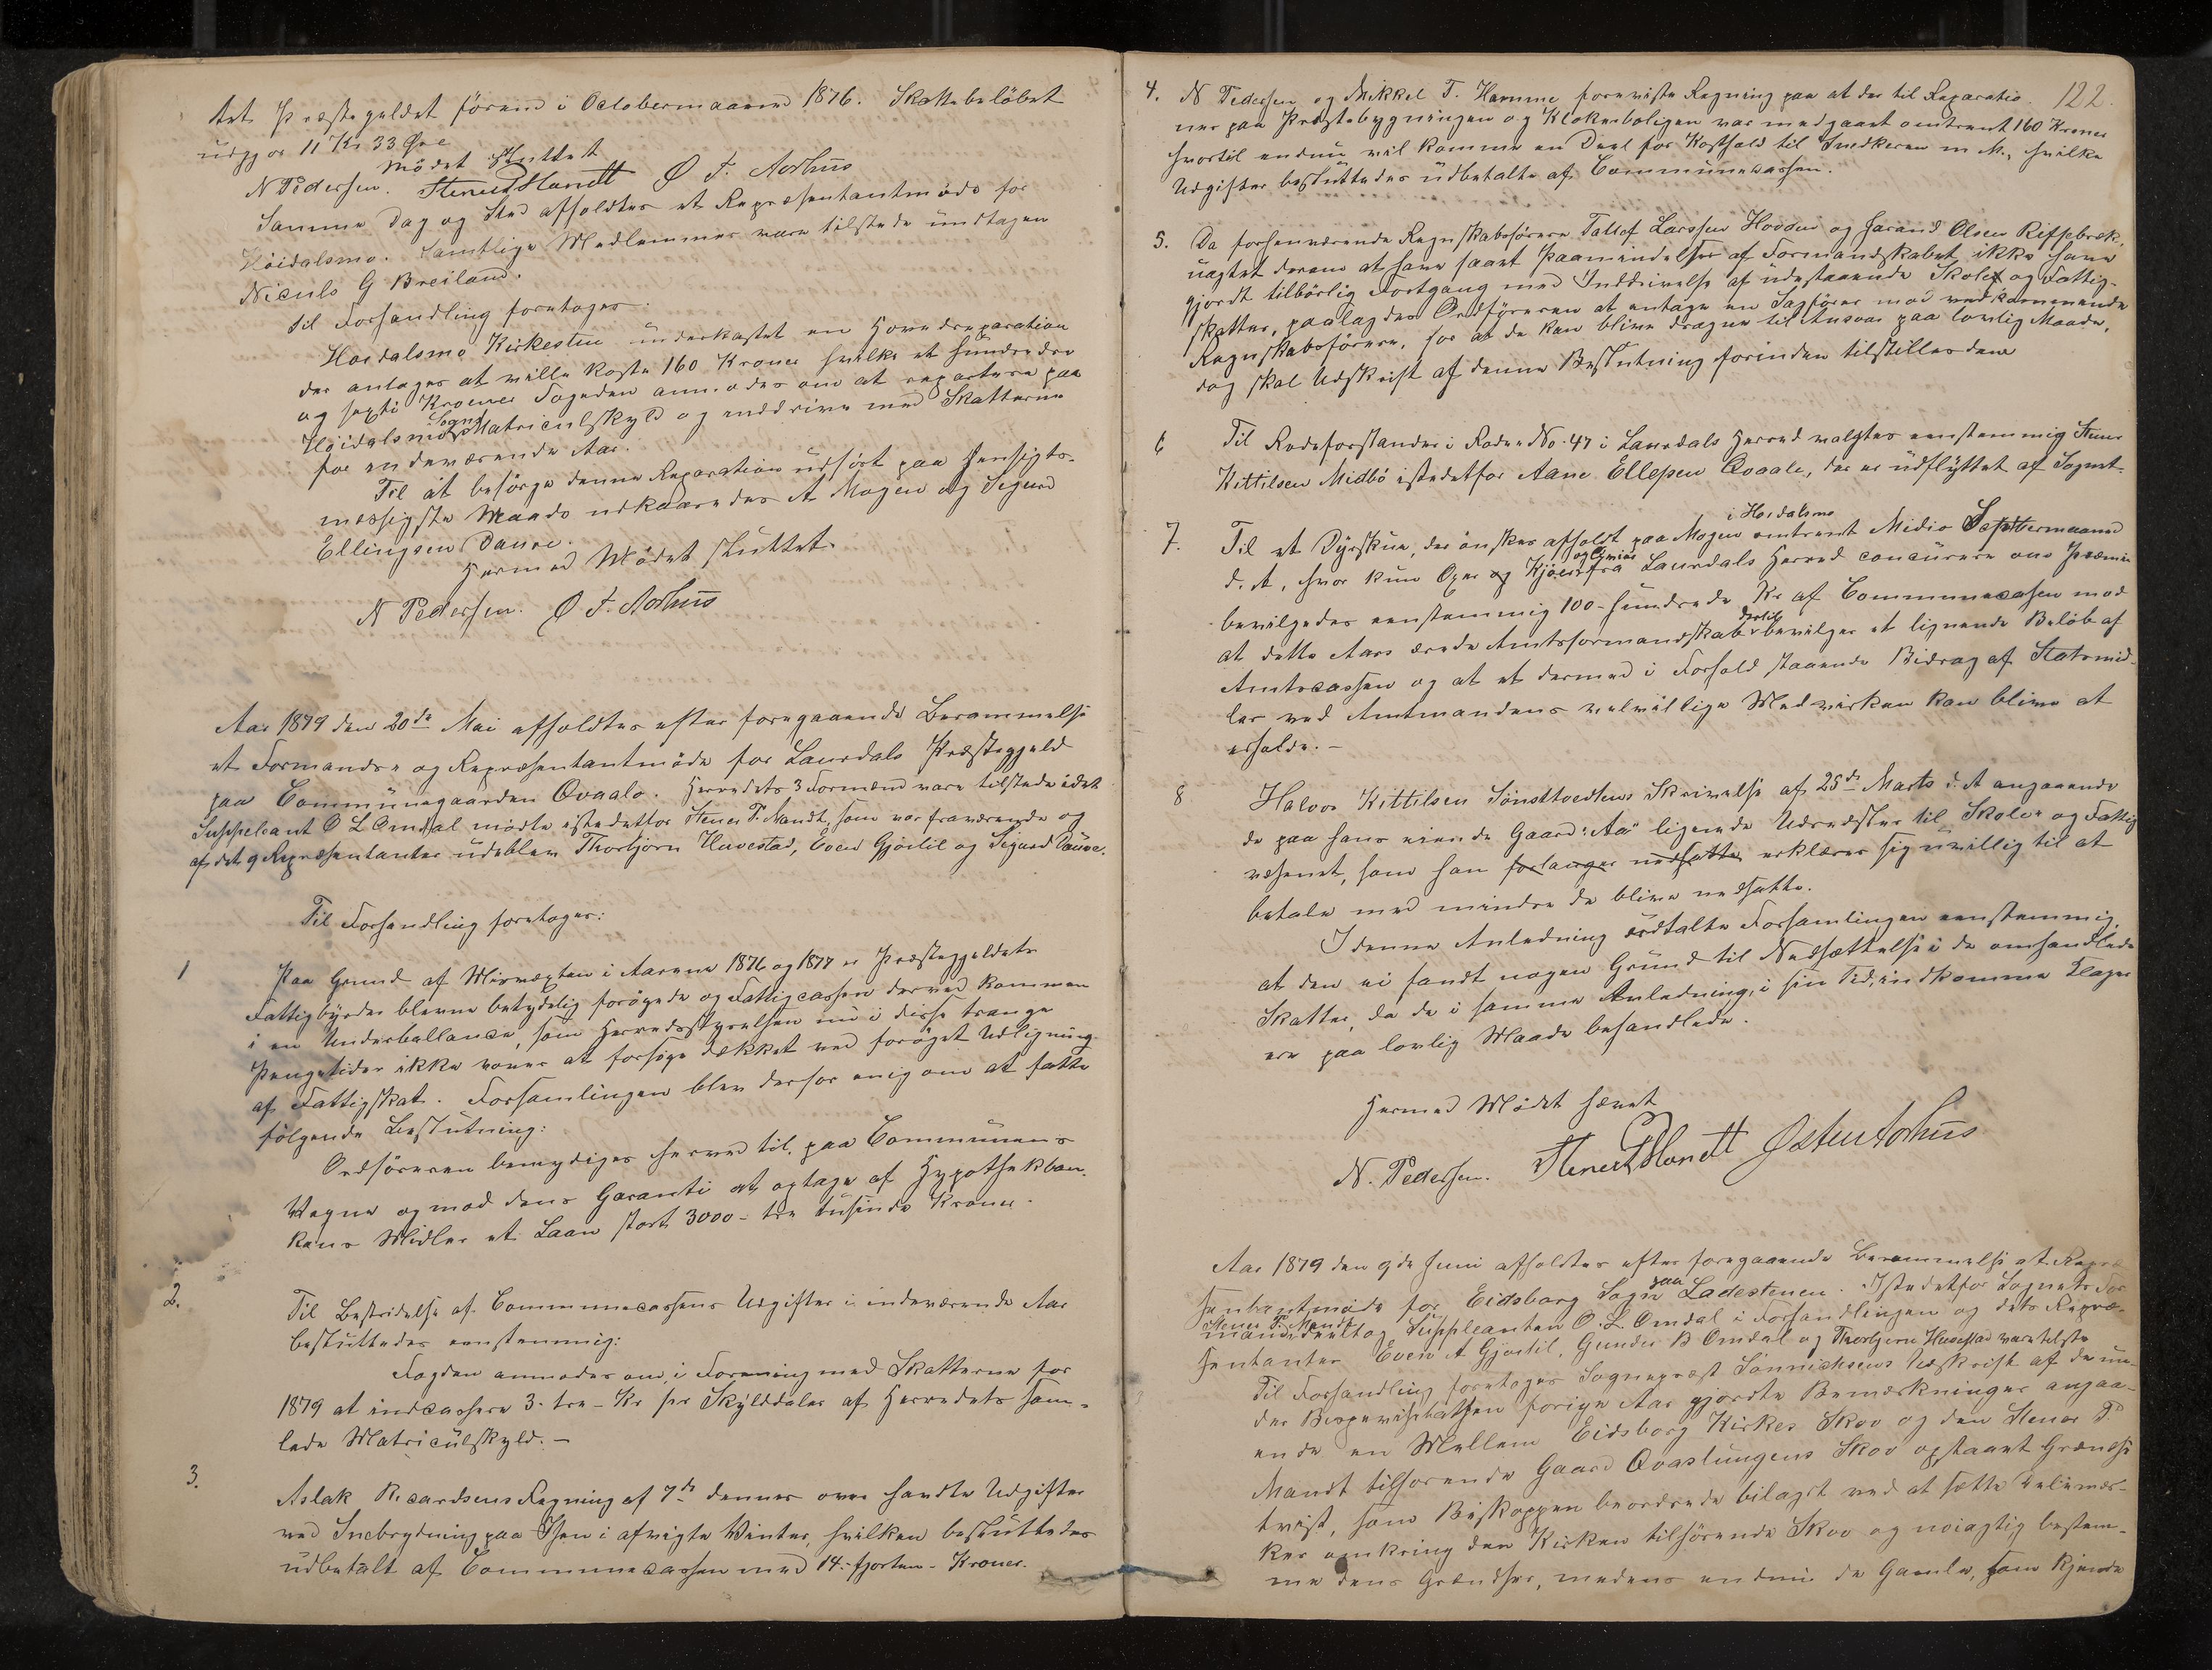 tet Præstegjeldet förend i Octobermaaned 1876. Skattebelöbet
udgjør 11 Kr 33 Øre
Mödet sluttet
N Pedersen. Stener P Mandt Ø T. Aarhus
Samme Dag og Sted afholdtes et Repræsentantmøde for
Høidalsmo. Samtlige Medlemmer vare tilstede undtagen
Niculs G Breiland.
Til Forhandling foretoges:
Høidalsmo Kirkestue underkastet en Hovedreparation
der antages at ville koste 160 Kroner hvilke et hundrede
og sexti Kroner Fogeden anmodes om at repartere paa
Høidalsmo Sogns Matriculskyld og inddrive med Skatterne
for indeværende Aar.
Til at besörge denne Reparation udført paa hensigts-
mæssigste Maade udkaaredes A Mogen og Sigurd
Ellingsen Daure.
Hermed Mödet sluttet.
N Pedersen. Ø T. Aarhus
Aar 1879 den 20de Mai afholdtes efter foregaaende Berammelse
et Formands- og Repræsentantmöde for Laurdals Præstegjeld
paa Communegaarden Qvaale. Herredets 3 Formænd vare tilstede idet
Suppleant O L Omdal mødte istedetfor Stener P. Mandt, som var fraværende og
af det 9 Repræsentanter udebleve Thorbjørn Huvestad, Even Gjøitil og Sigurd Daure.
Til Forhandling foretoges:
1 Paa Grund af Misvæxten i Aarene 1876 og 1877 er Præstegjeldets
Fattigbyrder blevne betydelig forøgede og Fattigcassen derved kommen
i en Underballance, som Herredsstyrelsen nu i disse trange
Pengetider ikke vover at forsöge dækket ved forøget Udligning
af Fattigskat. Forsamlingen blev derfor enig om at fatte
fölgende Beslutning:
Ordföreren bemyndiges herved til, paa Communens
Vegne og mod dens Garanti at optage af Hypothekban-
kens Midler et Laan stort 3000 - tre tusinde Kroner.
2. Til Bestridelse af Communecassens Udgifter i indeværende Aar
besluttedes eenstemmig:
Fogden anmodes om, i Forening med Skatterne for
1879 at indcassere 3. tre - Kr per Skylddaler af Herredets sam-
lede Matriculskyld. -
3. Aslak Ricardsens Regning af 7de dennes over havdte Udgifter
ved Snebrydning paa Isen i afvigte Vinter, hvilken besluttedes
udbetalt af Communecassen med 14. fjorten - Kroner.
122.
4. N Pedersen og Mikkel T. Hamme foreviste Regning paa at der til Reparatio-
ner paa Præstebygningen og Klokkerboligen var medgaaet omtrent 160 Kroner
hvortil endnu vil komme en Deel for Kosthold til Snedkeren m M., hvilke
Udgifter besluttedes udbetalte af Communecassen.
5. Da forhenværende Regnskabsførere Tallef Larssen Hovden og Harand Olsen
uagtet derom at have faaet Paamindelser af Formandskabet ikke have
gjordt tilbörlig Fortgang med Inddrivelse af udestaaende Skole og Fattig-
skatter, paalagdes Ordføreren at antage en Sagförer mod vedkommende
Regnskabsförere, for at de kan blive dragne til Ansvar paa lovlig Maade,
dog skal Udskrift af denne Beslutning forinden tilstilles dem
6 Til Rodeforstander i Rode No. 47 i Laurdals Herred valgtes eenstemmig Stener
Kittilsen Midbö istedetfor Aane Ellefsen Qvaale, der er udflyttet af Sognet.
7. Til et Dyrskue, der ønskes afholdt paa Mogen i Høidalsmo omtrent Midio Septbermaaned
d. A, hvor kun Oxer og Kjøer og Qvier fra Laurdals Herred concurere om Præmie
bevilgedes eenstemmig 100 - hundrede Kr af Communecassen mod
at dette Aars ærede Amtsformandskab dertil bevilger et lignende Belöb af
Amtscassen og at et dermed i Forhold staaende Bidrag af Statsmid-
ler ved Amtmandens velvillige Medvirken kan blive at
erholde. -
8 Halvor Kittilsen Skrivelse af 25de Marts d. A angaaende
de paa hans eiende Gaard: "Aa" lignede Udredsler til Skole- og Fattig
væsenet, som han forlanger nedsatte erklærer sig uvillig til at
betale med mindre de blive nedsatte.
I denne Anledning udtalte Forsamlingen eenstemmig
at den ei fandt nogen Grund til Nedsættelse i de omhandlede
Skatter, da de i samme Anledning, i sin Tid, indkomme Klager
ere paa lovlig Maade behandlede.
Hermed Mödet hævet
N. Pedersen. Stener P Mandt Østen Aarhus
Aar 1879 den 9de Juni afholdtes efter foregaaende Berammelse et Repræ-
sentantmøde for Eidsborg Sogn paa Ladestenen. Istedetfor Sognets For
mand Stener P. Mandt deeltog Suppleanten O. L. Omdal i Forhandlingen og dets Repræ-
sentanter Even A Gjøitil, Gunder B Omdal og Thorbjørn Huvestad vare tilste
Til Forhandling foretoges Sognepræst Sönnichsens Udskrift af de un-
der Bispevisitatsen forige Aar gjordte Bemærkninger angaa-
ende en Mellem Eidsborg Kirkes Skov og den Stener P.
Mandt tilhørende Gaard Qvaslungens Skov opstaaet Grændse
tvist, som Biskoppen beordrede bilagt ved at sætte Delemær-
ker omkring den Kirken tilhörende Skov og nøiagtig bestem-
me dens Grændser, medens endnu de Gamle, som kjende